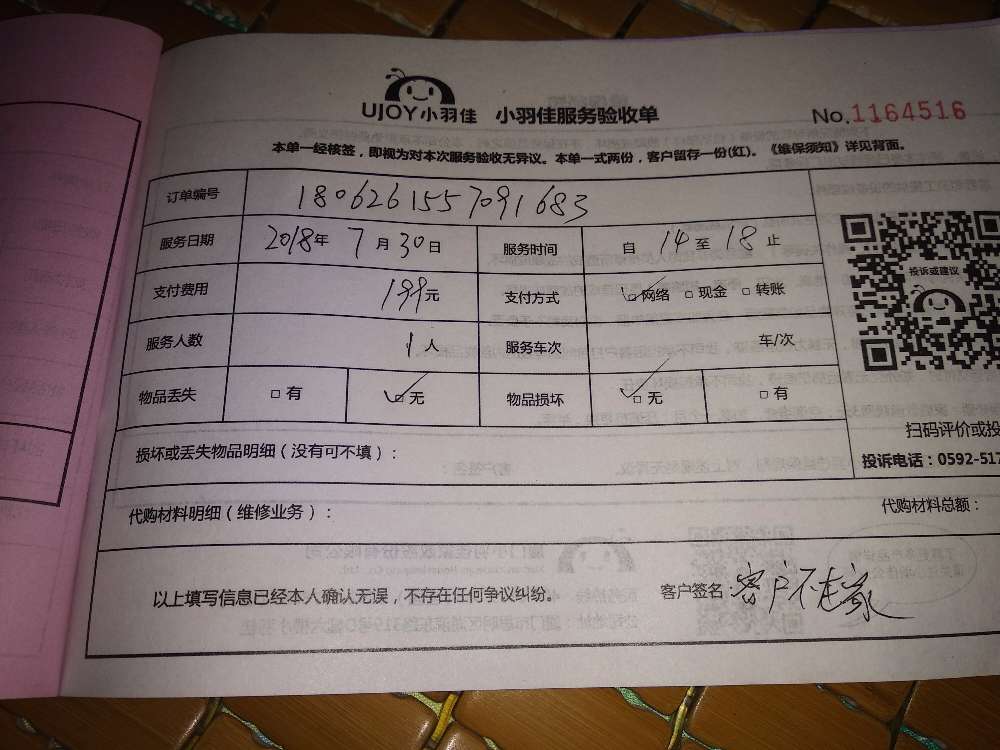 UJOY小羽佳 小羽佳服务验收单 No.1164516
本单一经核签，即视为对本次服务验收无异议。本单一式两份，客户留存一份(红)。《维保须知》详见背面。
订单编号 180626155709 1683
服务日期 2018年 7月30日 服务时间 自 14 至 18 止
支付费用 199元 支付方式 ☑网络 □现金 □转账
服务人数 1人 服务车次 车/次
物品丢失 □有 ☑无 物品损坏 ☑无 □有
投诉或建议
损坏或丢失物品明细（没有可不填）：
扫码评价或投
投诉电话：0592-517
代购材料明细（维修业务）： 代购材料总额：
以上填写信息已经本人确认无误，不存在任何争议纠纷。 客户签名：客户不在家